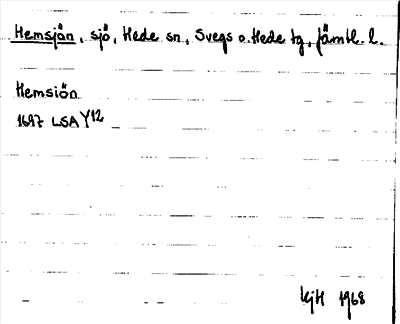 Hemsjön, sjö, Hede sn, Svegs o. Hede tg, Jämtl. l.
Hemsiön
1687 LSA Y12
KjH 1968